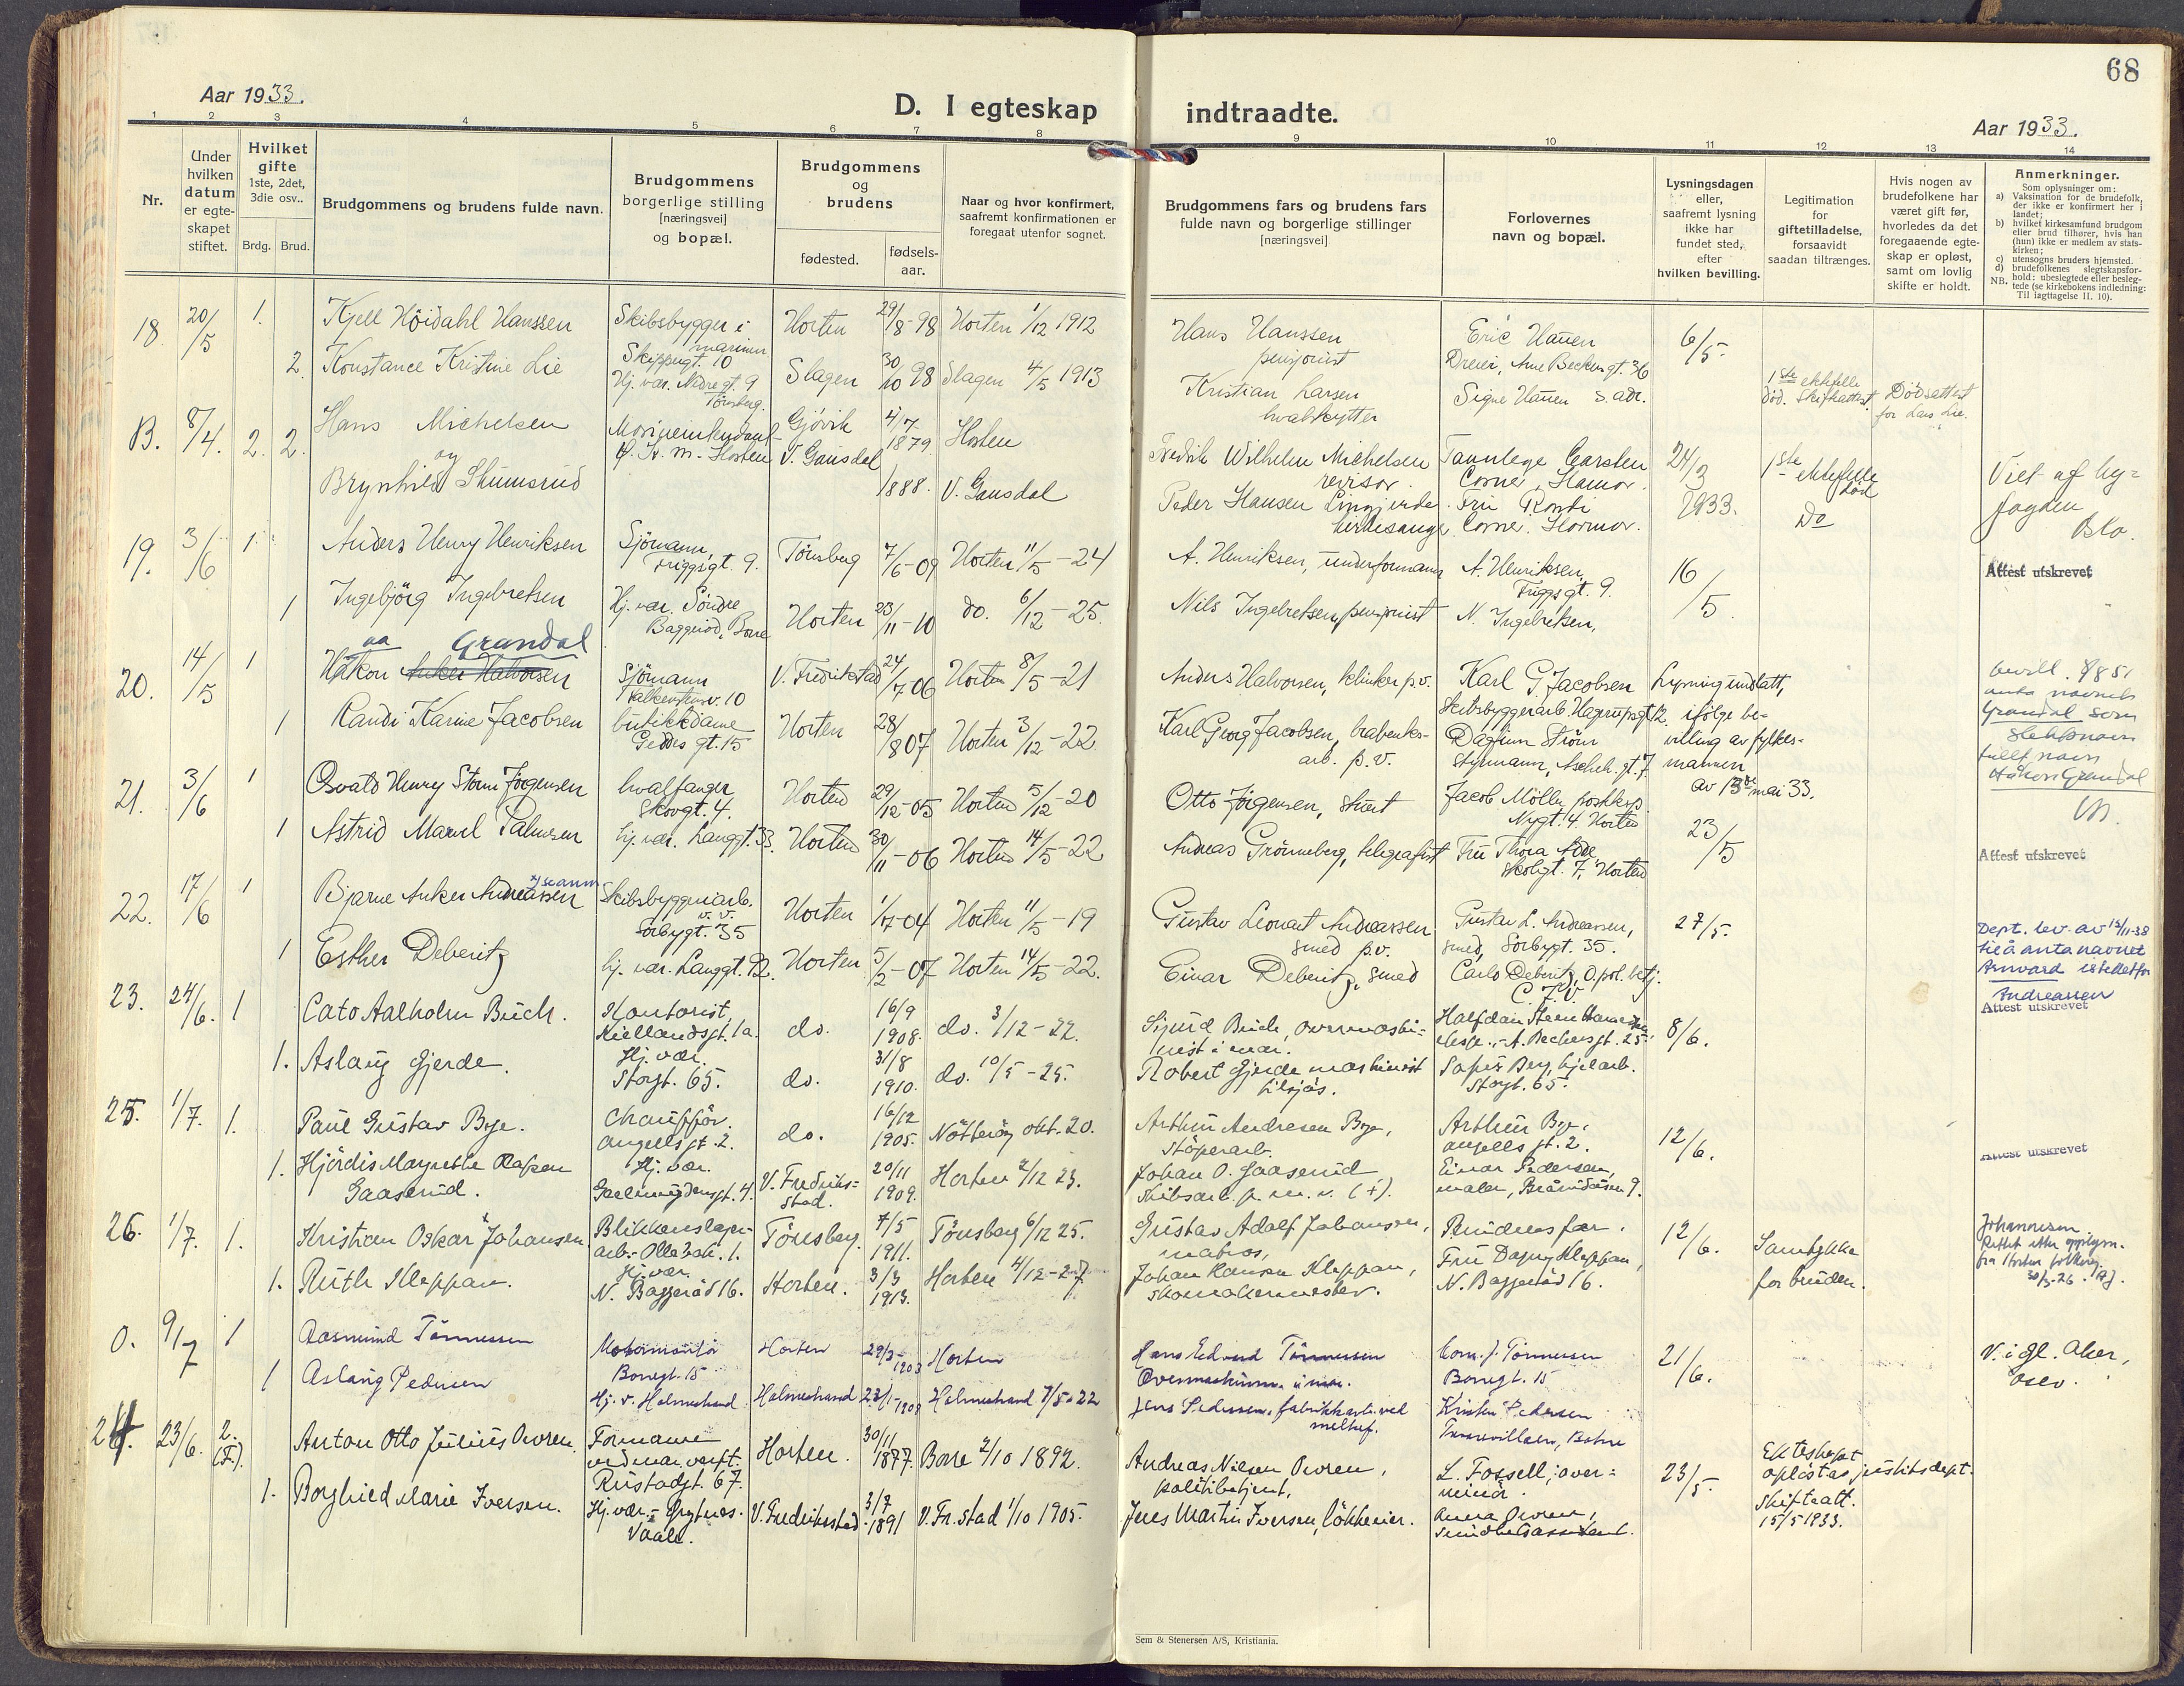 68
Aar 1933.
D. I egteskap indtraadte.
Aar 1933.
1 2 3 4 5 6 7 8 9 10 11 12 13 14
Nr.
Under hvilken datum er egte-skapet stiftet.
Hvilket gifte
1ste, 2det, 3die osv..
Brdg. Brud.
Brudgommens og brudens fulde navn.
Brudgommens borgerlige stilling
[næringsvei]
og bopæl.
Brudgommens og brudens
fødested.
fødsels-aar.
Naar og hvor konfirmert,
saafremt konfirmationen er
foregaat utenfor sognet.
Brudgommens fars og brudens fars
fulde navn og borgerlige stillinger
[næringsvei]
Forlovernes
navn og bopæl.
Lysningsdagen
eller,
saafremt lysning
ikke har
fundet sted,
efter
hvilken bevilling.
Legitimation
for
giftetilladelse,
forsaavidt
saadan tiltrænges.
Hvis nogen av
brudefolkene har
været gift før,
hvorledes da det
foregaaende egte-
skap er opløst,
samt om lovlig
skifte er holdt.
Anmerkninger.
Som oplysninger om:
a) Vaksination de brudefolk, der ikke er konfirmert her i landet;
b) hvilket kirkesamfund brudgom eller brud tilhører, hvis han (hun) ikke er medlem av stats-kirken;
c) utensogns bruders hjemsted.
d) brudefolkenes slegtskapsfor-hold: ubeslegtede eller besleg-tede (se kirkebokens indledning: Til iagttagelse II. 10).
NB.
18 20/5 1. Kjell Höidahl Hanssen Skibsbygger i marinen Skippergt. 10 Horten 29/8-98 Horten 1/12 1912 Hans Hanssen pensjonist Eric Hauen 6/5-
2. Konstance Kristine Lie Hj. vær. Nedre gt. 9 Tønsberg. Slagen 30/10 98 Slagen 4/5 1913 Kristian Larsen hvalskytter Signe Hauen s. adr. 1ste ektefelle død. Skifteattest Dödsattest for Lars Lie.
B. 8/4. 2. 2. Hans Michelsen Marineintendant Horten Gjövik 4/7 1879. Horten Fredrik Wilhelm Michelsen revisor. Tannlege Carsten Corne, Hamar. 24/3 1933. 1ste ektefelle död
og
Brynhild Skumsrud V. Gausdal 1888. V. Gausdal Peder Hansen kirkesanger Fru Corne. Hamar. Do
Viet af by-fogden
19. 3/6 1. Anders Henry Henriksen Sjömann, Friggsgt. 9. Tönsberg 7/6-09 Horten 11/5-24 A. Henriksen, underformann A. Henriksen, Friggsgt. 9. 16/5. Attest utskrevet
1 Ingebjörg Ingebretsen Hj. vær. Söndre Baggeröd, Borre Horten 23/11-10 do. 6/12-25. Nils Ingebretsen, pensjonist N. Ingebretsen,
20. 14/5 1 Håkon Anker Halvorsen Grandal Sjömann Falkensteinv. 10 V. Fredrikstad 24/7 06 Horten 8/5-21 Anders Halvorsen, klinker p.v. Karl G. Jacobsen Skibsbyggerarb. Hagerupsgt 12. Lysning undlatt, ifölge be-villing av fylkes-mannen av 13de mai 33.
1 Randi Karine Jacobsen butikkdame Geddes gt. 15 Horten 28/8 07 Horten 3/12-22 Karl Georg Jacobsen, arb. p.v. Dagfinn Ström Styrmann,
Grandal som slektsnavn fullt navn Håkon Grandal
21. 3/6 1 Osvald Henry Storm Jörgensen hvalfanger Skovgt. 4. Horten 29/12-05 Horten 5/12-20 Otto Jörgensen, Jacob Möller Nygt. 4. Horten 23/5
1 Astrid Marvel Palmesen hj. vær. Langgt. 33. Horten 30/11-06 Horten 14/5-22 Andreas Grönneberg, telegrafist Fru Thora Skolgt. 7, Horten Attest utskrevet
22. 17/6 1 Bjarne Anker Andreassen Skibsbyggeriarb. v. v. Sörbygt. 35 Horten 1/7-04 Horten 11/5-19 Gustav Leonart Andreassen smed p.v. Gustav L. Andreassen, smed, Sörbygt. 35. 27/5.
1 Esther Deberitz hj. vær. Langgt. 92. Horten 5/2-07 Horten 14/5-22. Einar Deberitz, smed Carlo Deberitz, O.pol. betj.
Dept. bev. av 12/11-38 til å anta navnet Arnvard istedetfor Andreassen
Attest utskrevet
23. 24/6. 1 Cato Aalholm Buch. Kontorist, Kiellandsgt. 1a. do. 16/9 1908. do. 3/12-22. Sigurd Buch, overmaski-nist i mar. Halfdan Steen A. Beckersgt. 25. 8/6.
1. Aslaug Gjerde. Hj. vær. Storgt. 65. do. 31/8 1910. do. 10/5-25. Robert Gjerde maskinist tilsjös. Sofus Berg, hjelarb. Storgt. 65.
25. 1/7. 1. Paul Gustav Bye. Chauffør. Angells gt. 2. do. 16/12 1905. Nötteröy okt. 20. Arthur Andresen Bye, Stöperarb. Arthur Bye, Angells gt. 2. 12/6. Attest utskrevet
1. Hjördis Margrethe Gaaserud. Hj. vær. V. Fredriks-stad. 20/11 1909. Horten 2/12 23. Johan O. Gaaserud Skibsarb. p. m. v. (+). Einar Pedersen, maler,
26. 1/7. 1. Kristian Oskar Johansen Blikkenslager-arb. Ollebak. 1. Tönsberg. 7/5 1911. Tönsberg 6/12 25. Gustav Adolf Johansen, matros, Brudens far. 12/6. Samtykke for bruden.
1. Ruth Kleppan. Hj. vær. N. Baggeröd 16. Horten. 3/3 1913. Horten 4/12-27. Johan Hansen Kleppan, skomakermester. Fru Dagny Kleppan, N. Baggeröd 16.
Johannesen. Rettet etter opplysn. fra Horten folkereg.
0. 9/7 1 Aasmund Tönnessen Borregt. 15 Horten 29/3-1903 Horten Hans Edvard Tönnessen Overmaskinm. i mar. Tönnessen Borregt. 15 21/6. V. i gl. Aker, Oslo.
1 Aslaug Pedersen Hj. v. Holmestrand Holmestrand 23/1-1908 Holmestrand 7/5-22 Jens Pedersen, fabrikkarb. ved Kristen Pedersen
24. 23/6. 2. (F.) Anton Otto Julius Owren. Formann ved mar. verft. Rustadgt. 67. Horten. 30/11 1877. Borre 2/10 1892. Andreas Nilsen Owren, politibetjent. L. Fossell, over-minör. 23/5- Ekteskapet oplöst av justitsdept. Skifteatt. 15/5 1933.
1. Borghild Marie Iversen. Hj. vær. Vaale. V. Fredrikstad 3/7 1891 V. Fr.stad 1/10 1905. Jens Martin Iversen, lökkeeier. Anna Owren,
Sem & Stenersen A/S, Kristiania.